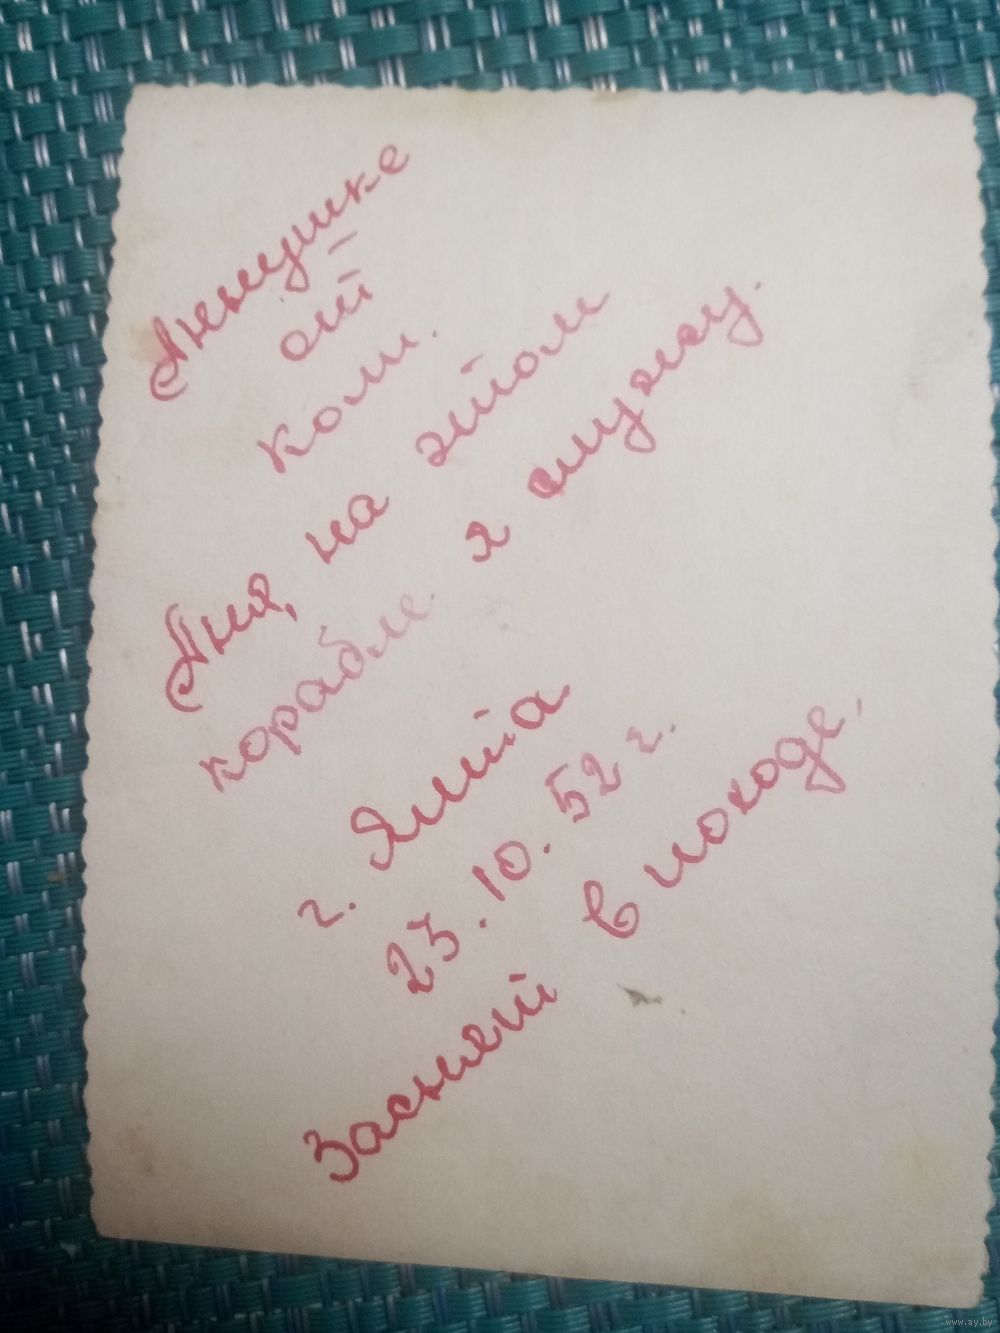 Аннушке
от
Коли.
Аня, на этом
корабле я служу.
г. Ялта
23.10.52 г.
Заснят в походе.
www.ay.by